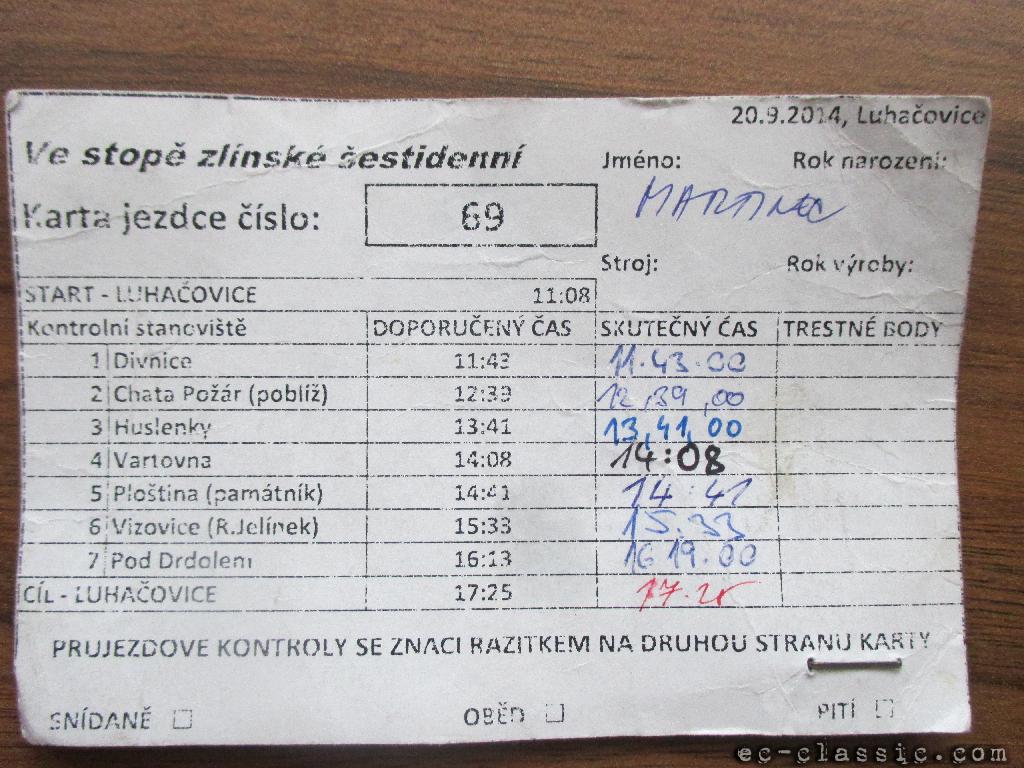 20.9.2014, Luhačovice
Ve stopě zlínské šestidenní
Jméno: Rok narození:
Karta jezdce číslo: 69
MARTINEC
Stroj: Rok výroby:
START - LUHAČOVICE 11:08
Kontrolní stanoviště DOPORUČENÝ ČAS SKUTEČNÝ ČAS TRESTNÉ BODY
1 Divnice 11:43 11.43.00
2 Chata Požár (poblíž) 12:39 12,39,00
3 Huslenky 13:41 13,41,00
4 Vartovna 14:08 14:08
5 Ploština (památník) 14:41 14:41
6 Vizovice (R.Jelínek) 15:33 15.33
7 Pod Drdolem 16:13 16 19.00
CÍL - LUHAČOVICE 17:25 17.25
PRUJEZDOVE KONTROLY SE ZNACI RAZITKEM NA DRUHOU STRANU KARTY
SNÍDANĚ OBĚD PITÍ
ec-classic.com